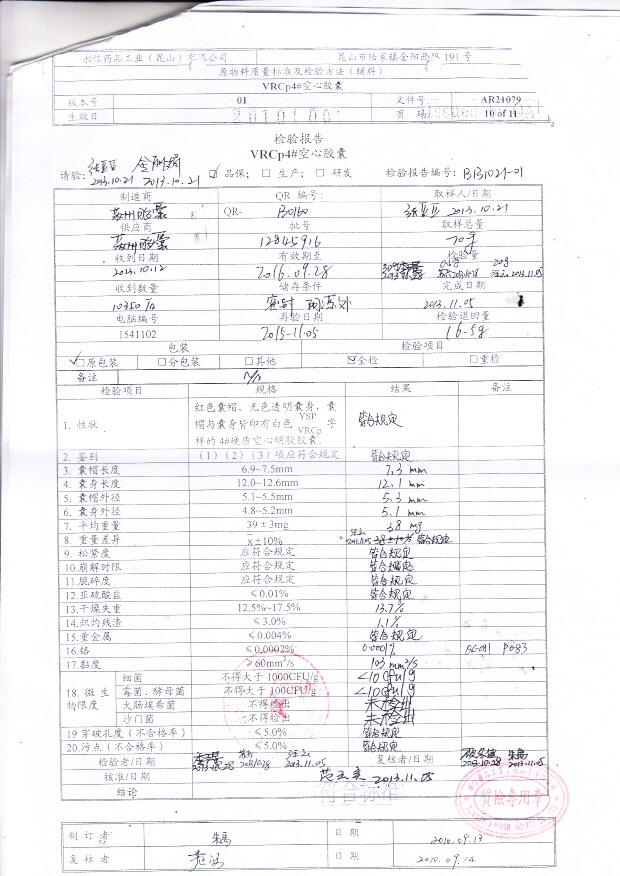 永信药品工业（昆山）有限公司 昆山市陆家镇金阳西路 191 号
原物料质量标准及检验方法（辅料）
VRCp4#空心胶囊
版本号 01 文件号 AR21079
生效日 20101001 页 码 10 of 11
检验报告
VRCp4#空心胶囊
请检：张亚亚 2013.10.21 2013.10.21 ☑ 品保；□ 生产；□ 研发 检验报告编号：B131021-01
制造商 QR 编号： 取样人/日期
苏州胶囊 QR- B0160 张亚亚 2013.10.21
供应商 批号 取样总量
苏州胶囊 12845916 70g
收到日期 有效期至 检验量
2013.10.12 2016.09.28 20g 2013.11.05
收到数量 储存条件 完成日期
10350 密封 2013.11.05
电脑编号 再验日期 检验退回量
1541102 2015.11.05 16.5g
包装 检验项目
☑原包装 □分包装 □其他 ☑全检 □重检
备注 N/A
检验项目 规格 结果 备注
1. 性状 红色囊帽、无色透明囊身，囊帽与囊身皆印有白色 YSP VRCp 字样的 4#硬质空心明胶胶囊。 符合规定
2. 鉴别 （1）（2）（3）项应符合规定 符合规定
3. 囊帽长度 6.9~7.5mm 7.3 mm
4. 囊身长度 12.0~12.6mm 12.1 mm
5. 囊帽外径 5.1~5.5mm 5.3 mm
6. 囊身外径 4.8~5.2mm 5.1 mm
7. 平均重量 39 ± 3mg 38 mg
8. 重量差异 x̄ ±10% 符合规定
9. 松紧度 应符合规定 符合规定
10. 崩解时限 应符合规定 符合规定
11. 脆碎度 应符合规定 符合规定
12. 亚硫酸盐 ≤0.01% 符合规定
13. 干燥失重 12.5%~17.5% 13.7%
14. 炽灼残渣 ≤3.0% 1.1%
15. 重金属 ≤0.004% 符合规定
16. 铬 ≤0.0002% 0.0001% P083
17. 黏度 ≥60mm²/s 103 mm²/s
18. 微生物限度 细菌 不得大于 1000CFU/g <10CFU/g
霉菌、酵母菌 不得大于 100CFU/g <10CFU/g
大肠埃希菌 不得检出 未检出
沙门菌 不得检出 未检出
19 穿破孔度（不合格率） ≤5.0% 符合规定
20. 污点（不合格率） ≤5.0% 符合规定
检验者/日期 2013.10.28 2013.11.05 复核者/日期 2013.10.28 2013.11.05
核准/日期 2013.11.05
结论 符合标准
質檢專用章
制 订 者 朱禹 日 期 2010.09.13
复 核 者 日 期 2010.09.14